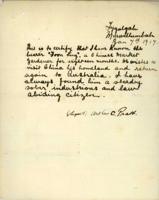 Tygalgah
Murwillumbah
Jan 7th 1919
This is to certify that I have known the
bearer "Foon Ling", a Chinese Market
Gardener for eighteen months. He wishes to
visit China his homeland and return
again to Australia. I have
always found him a steady
sober industrious and law
abiding citizen.
Arthur C. Pratt